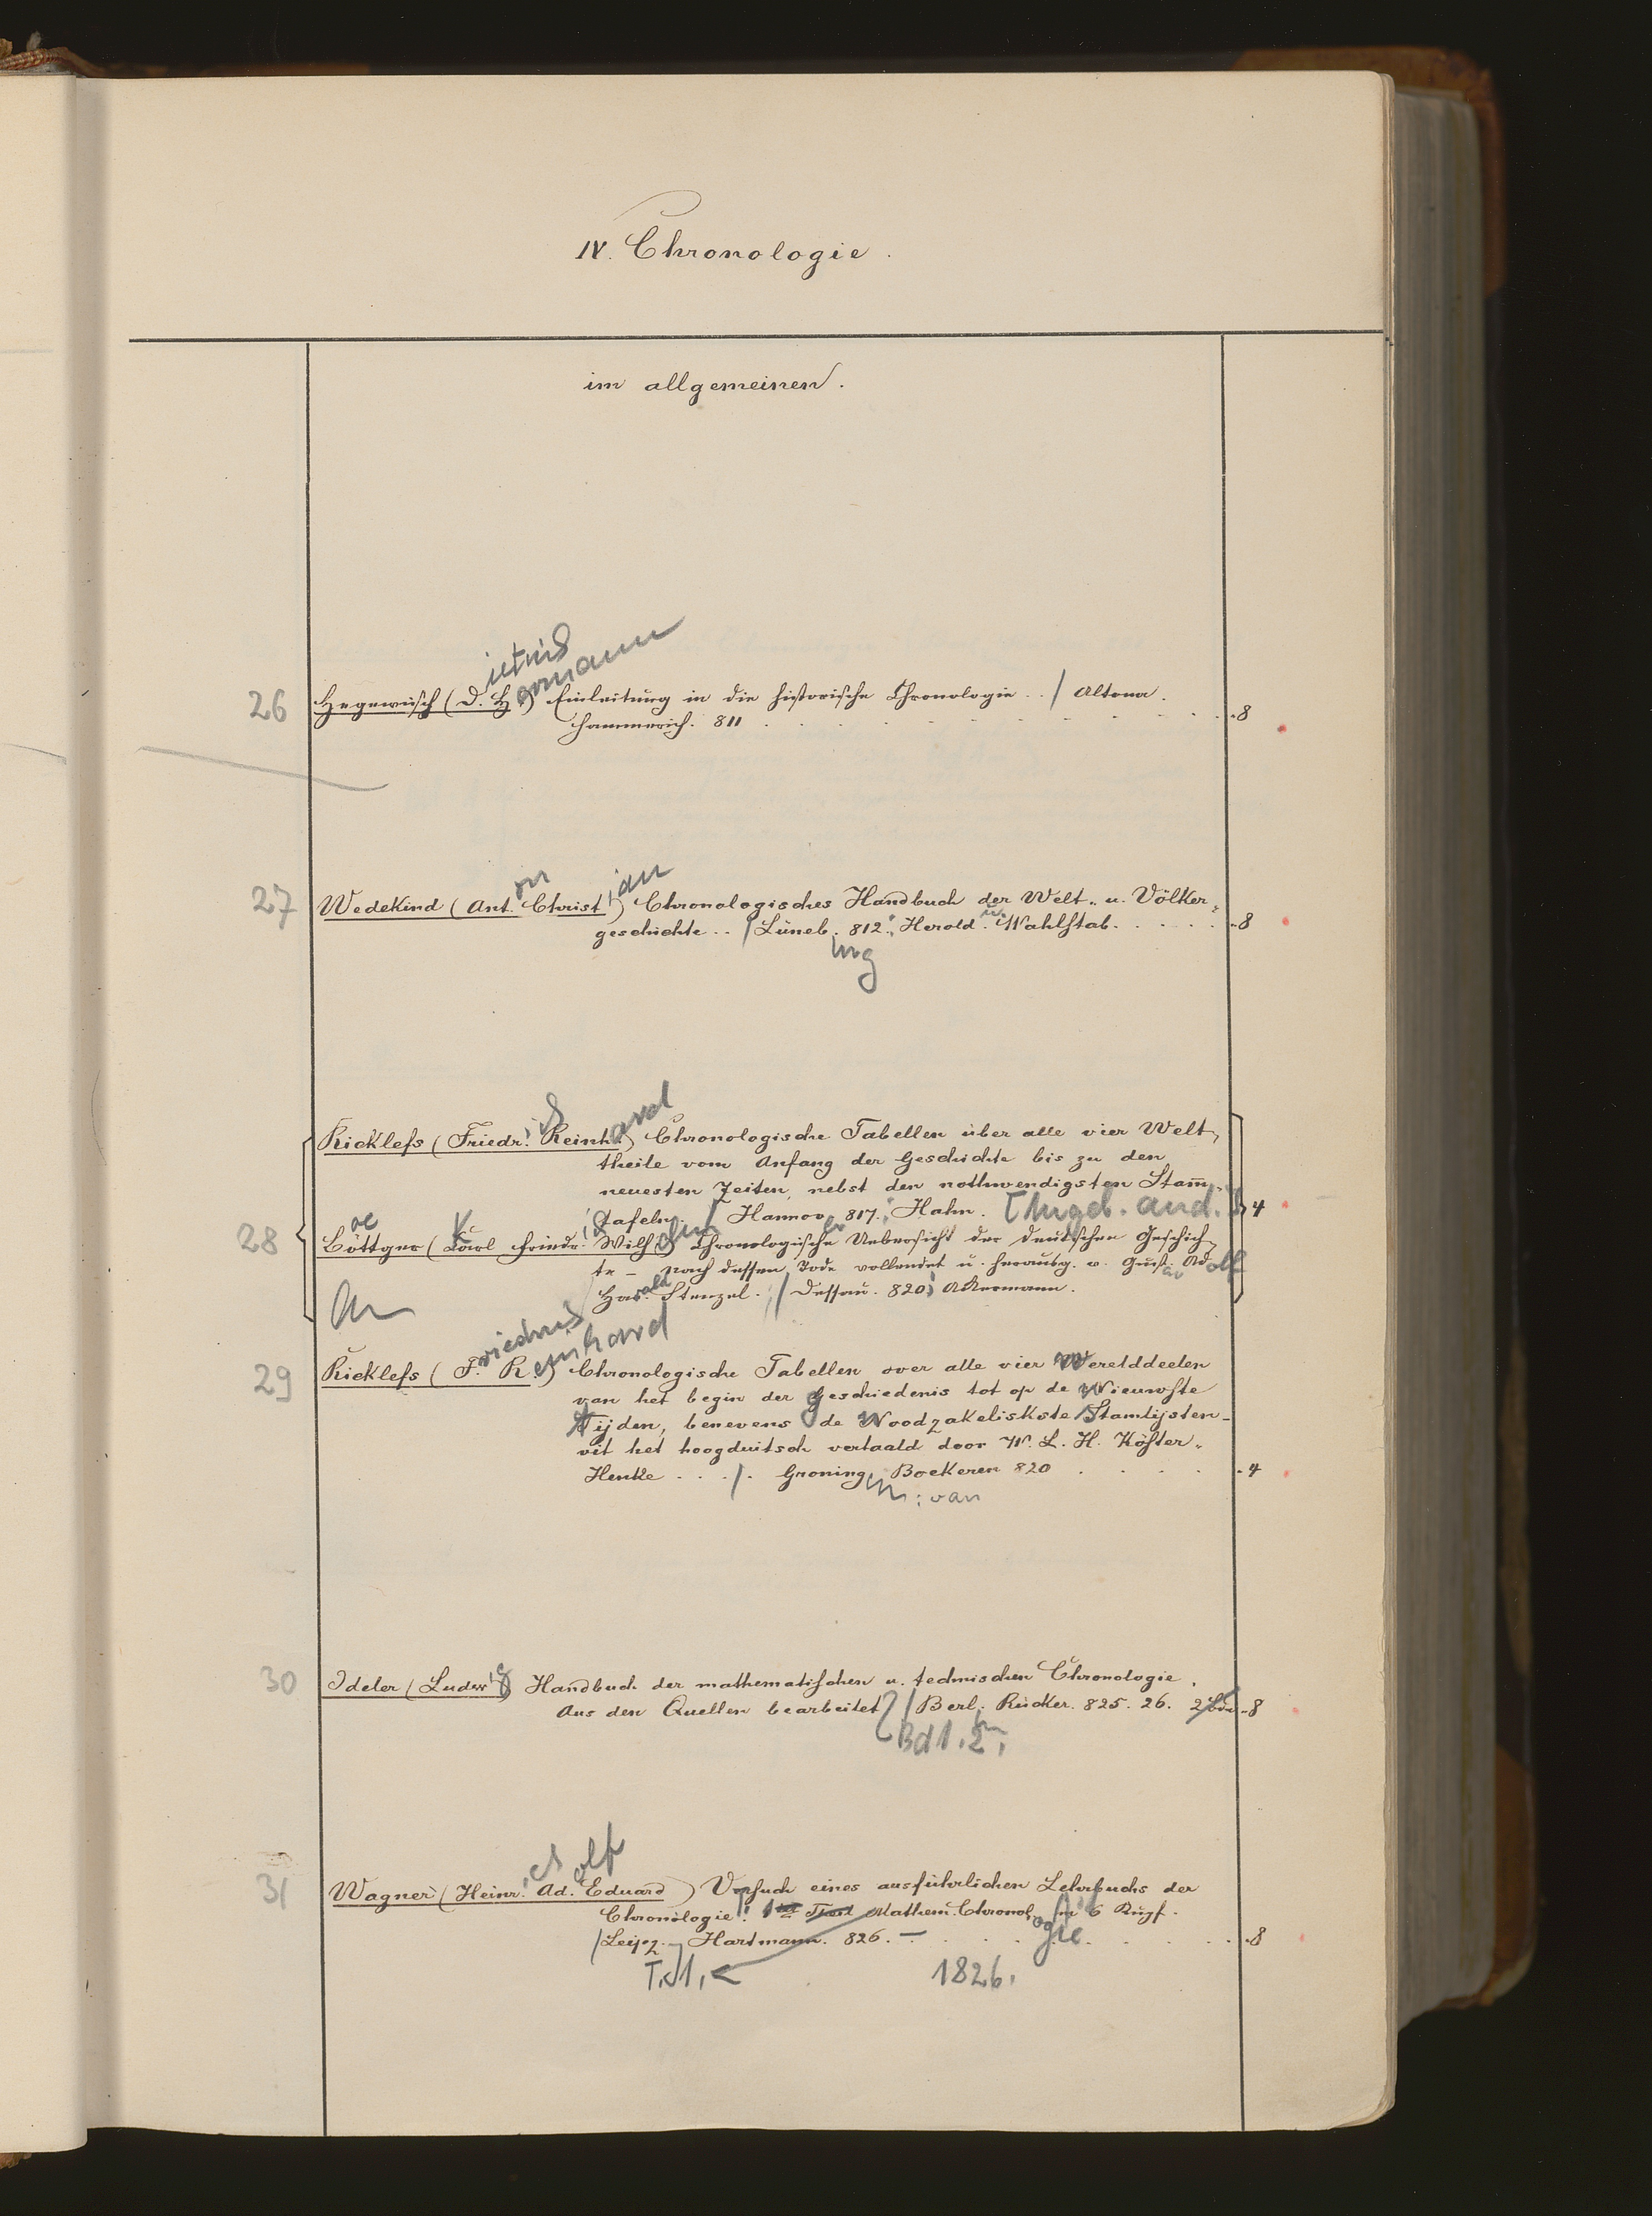 IV. Chronologie.
im allgemeinen.
ietrich
ermann
26 Hegewisch (D. H.) Einleitung in die historische Chronologie .. / Altona.
Hammerich. 811 . . . . . . . . . -8
on ian
27 Wedekind (Ant. Christ.) Chronologisches Handbuch der Welt- u. Völker-
geschichte .. / Lüneb. 812. Herold u. Wahlstab. . . . . -8
urg
ich ard
Ricklefs (Friedr. Reinh.) Chronologische Tabellen über alle vier Welt-
theile vom Anfang der Geschichte bis zu den
neuesten Zeiten, nebst den nothwendigsten Stam̄-
tafeln. / Hannov. 817. Hahn. [Angeb. and.] 4
28 Böttger (Karl Friedr. Wilh.) Chronologische Uebersicht der deutschen Geschich-
te – nach dessen Tode vollendet u. herausg. v. Gust. Adolf
Harald Stenzel. // Dessau. 820; Ackermann.
An
riedrich
einhard
29 Ricklefs (F. R.) Chronologische Tabellen over alle vier Werelddeelen
van het begin der Geschiedenis tot op de Nieuwste
Tijden, benevens de Noodzakeliskste Stamlijsten –
uit het hoogduitsch vertaald door W. L. H. Köster-
Henke . . . /. Groning. Boekeren 820 . . . . -4
en: van
30 Ideler (Ludwig) Handbuch der mathematischen u. technischen Chronologie.
Aus den Quellen bearbeitet / Berl. Rücker. 825. 26. 2 Bde -8
Bd 1. 2.
ich olf
31 Wagner (Heinr. Ad. Eduard) Versuch eines ausführlichen Lehrbuchs der
Chronologie. 1ter Theil Mathem. Chronologie m. 6 Kupf.
/ Leipz. Hartmann. 826. – . . . . -8
T. 1. 1826.